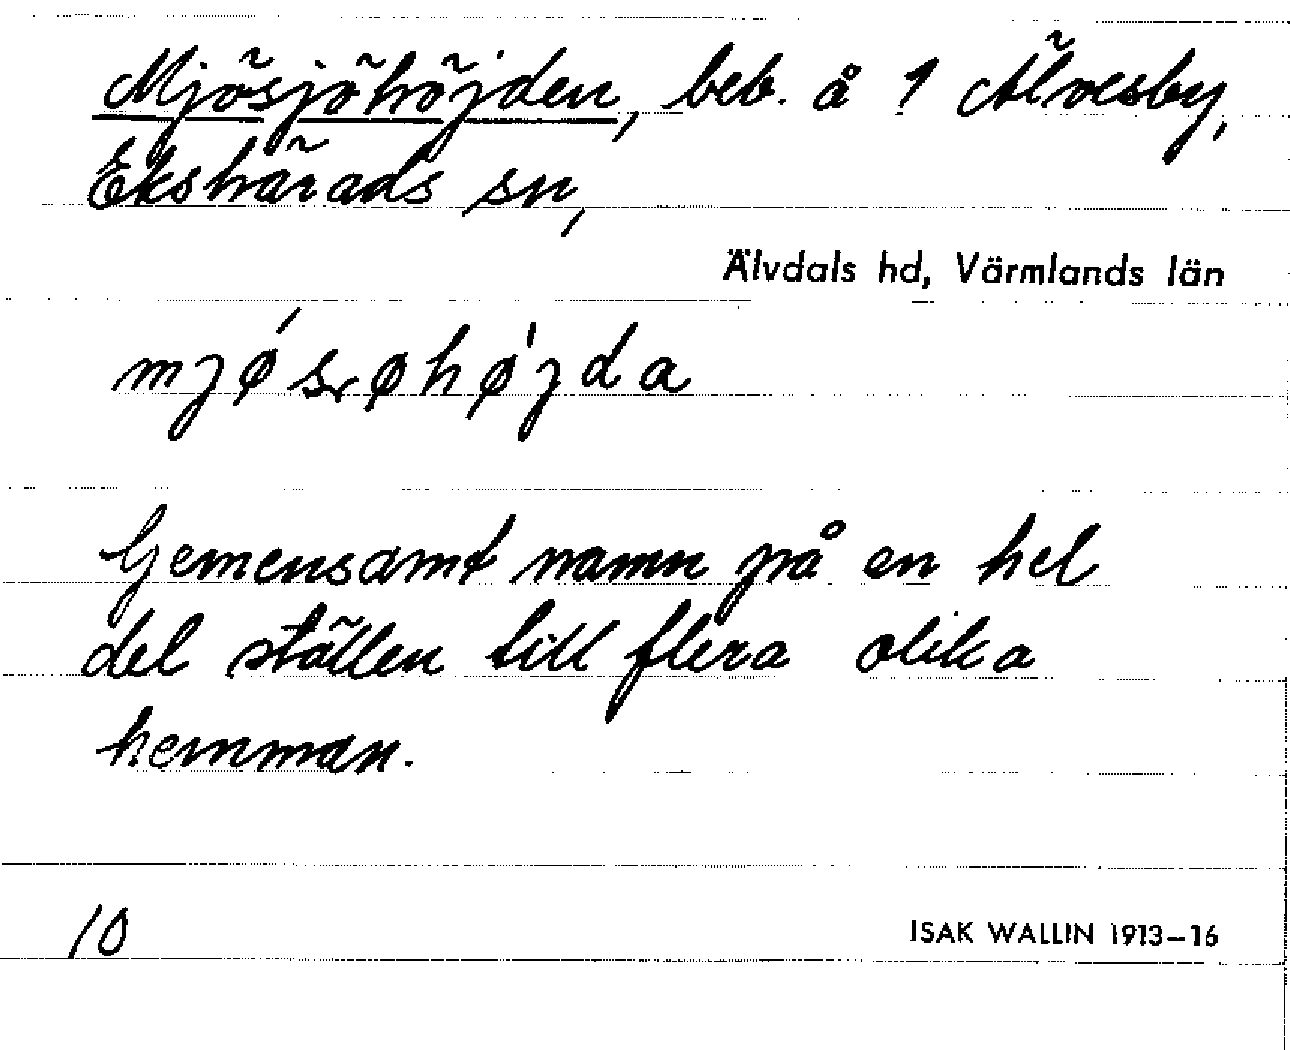 Mjösjöhöjden, beb. å 1 Älvesby,
Ekshärads sn,
Älvdals hd, Värmlands län
Gemensamt namn på en hel
del ställen till flera olika
hemman.
10
ISAK WALLIN 1913–16